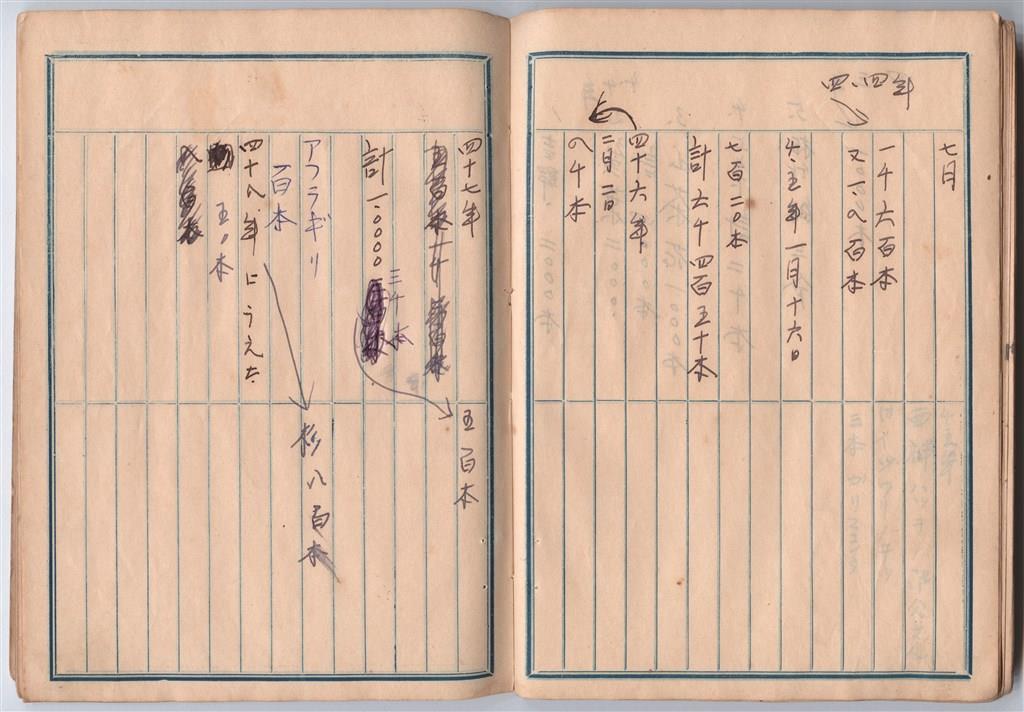 四、四年
七月
一千六百本
又一、八百本
四、五年一月十六日
七百二〇本
計六千四百五十本
四十六年
二月二日
の千本
四十七年
五百本
三千本
計一、〇〇〇〇
アブラギリ
一百本
杉八百本
四十八年にうえた
五〇本